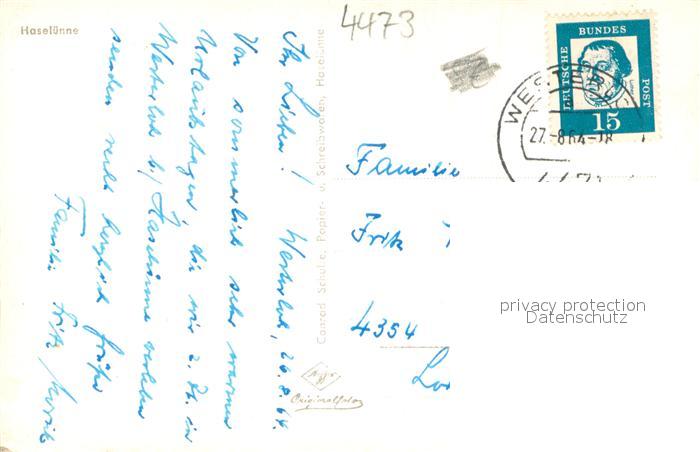 Haselünne
4473
DEUTSCHE BUNDES POST
15
WEST
27.-8.64-18
4473
Ihr Lieben! Westerloh, 26.8.64.
Von sommerlich sehr warmen
Urlaubstagen, die wir z. Zt. in
Westerloh b/ Haselünne verleben
senden recht herzliche Grüße
Familie Fritz
Conrad Schulte, Papier- u. Schreibwaren, Haselünne
Originalfoto
Familie
Fritz
4354
privacy protection
Datenschutz